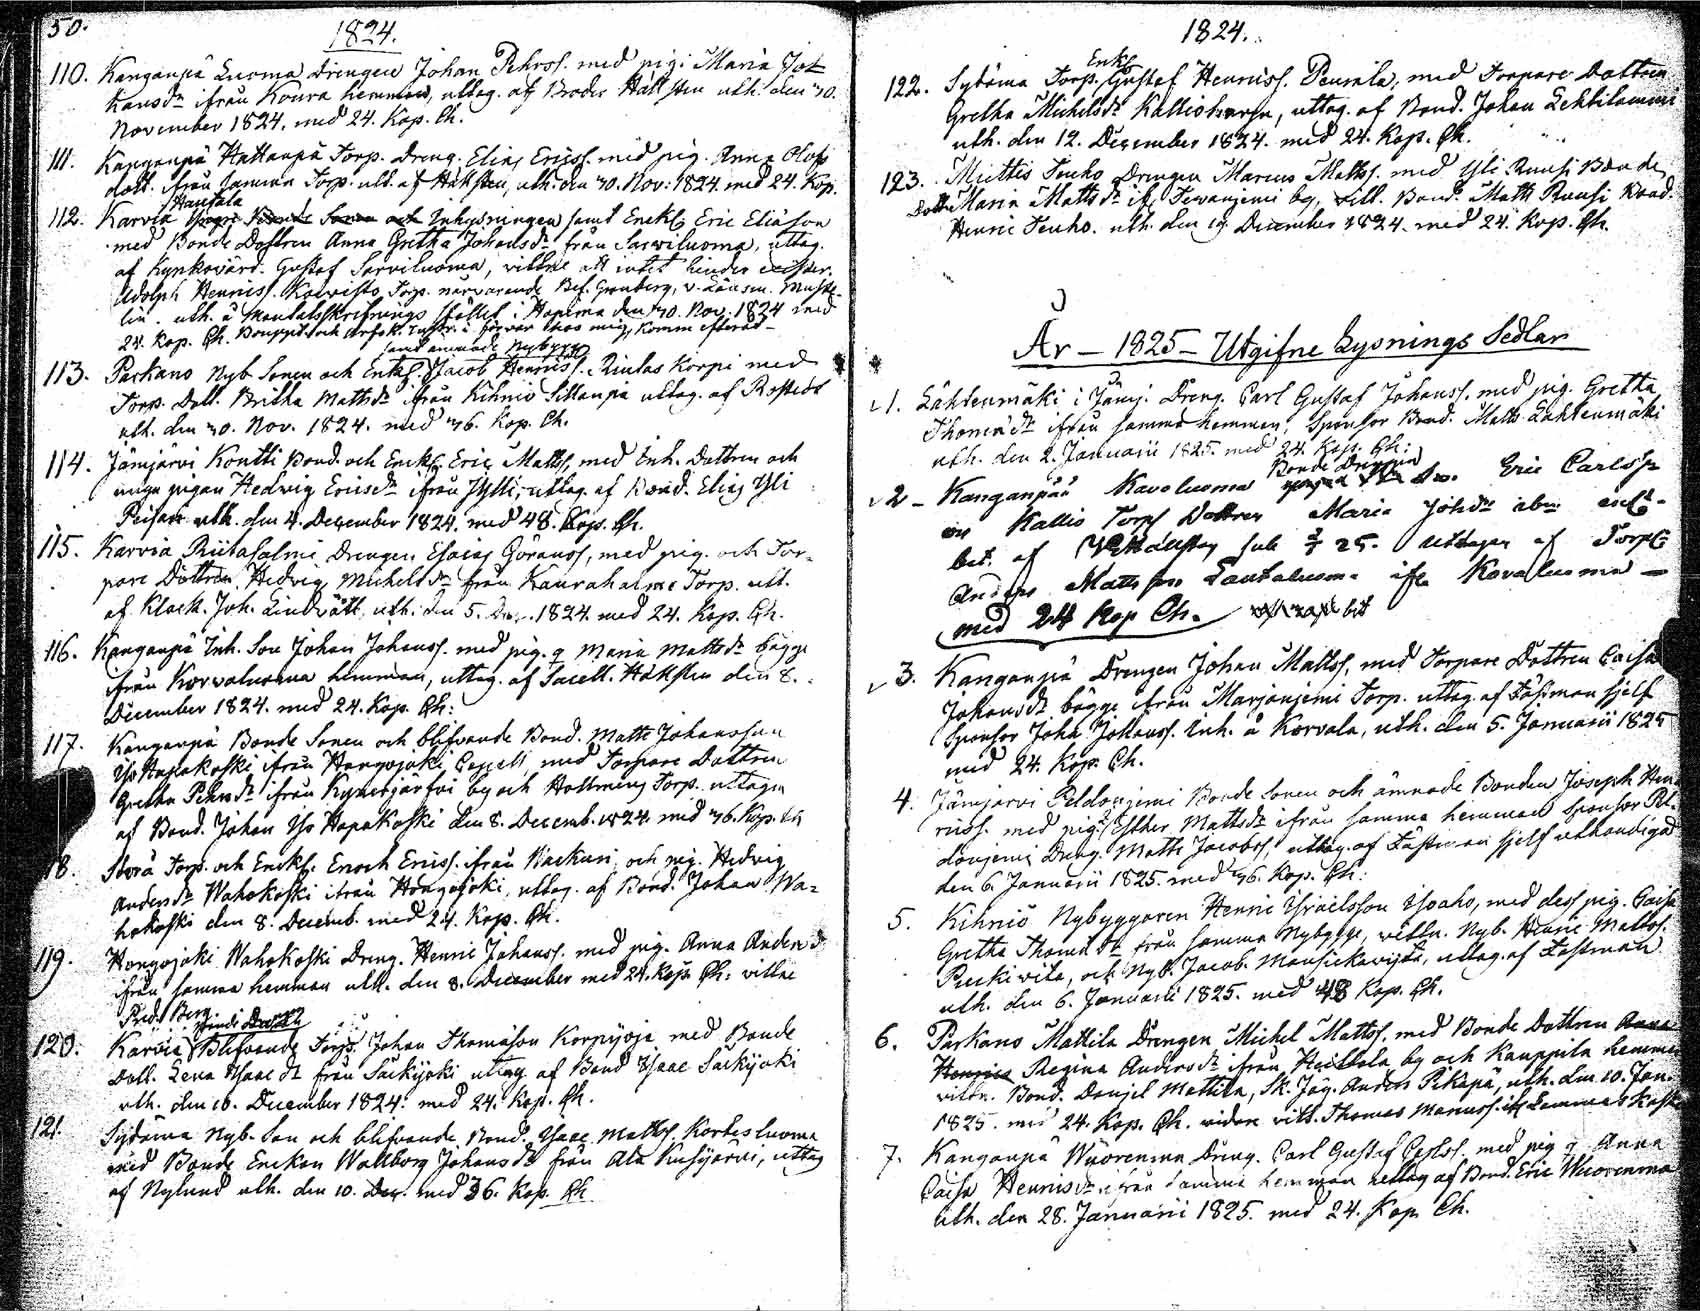 50.
1824.
110. Kanganpä Luoma Drengen Johan Pehrss. med pig. Maria Jo-
hansdr ifrån Koura hemman, uttag. af Broder Håksten uth. den 30.
November 1824. med 24. Kop. Ch.
111. Kanganpä Hattanpä Torp. Dreng. Elias Ericss. med pig. Anna Olofs
dott. ifrån samma Torp. utt. af Håksten, uth. den 30. Nov: 1824 med 24. Kop.
Hausala
112. Karvia Bonde Sonen och Inhysningen samt Enckl. Eric Eliason
med Bonde Dottren Anna Gretha Johansdr från Sarviluoma, uttag.
af Kyrkovärd. Gustaf Sarviluoma, vittne att intet hinder existerar
Adolph Henricss. Koivisto Torp. närvarande Bef. Grönberg, v. Länsm. Muste-
lin. uth. å Mantalsskrifnings stället i Haapima den 30. Nov. 1824 med
24. Kop. Ch. Bouppt. och Arfsk. Instr. i förvar hos mig, komm efteråt
samt ämnade Nybygg.
113. Parkano Nyb. Sonen och Enkl. Jacob Henricss. Rintas Korpi med
Torp. Dott. Britha Mathsdr ifrån Kihniö Sillanpä uttag. af Rostedt
uth. den 30. Nov. 1824. med 36. Kop. Ch.
114. Jämijärvi Kontti Bond. och Enckl. Eric Mattss, med Inh. Dottren och
unga pigan Hedwig Ericsdr ifrån Ylli, uttag. af Bond. Elias Yli
Peijari uth. den 4. December 1824. med 48. Kop. Ch.
115. Karvia Riitasalmi Drengen Esaias Göranss, med pig. och Tor-
pare Dottren, Hedvig Michelsdr från Kauraharme Torp. utt.
af Klock. Joh. Lindvått, uth. den 5. Dec. 1824. med 24. Kop. Ch.
116. Kanganpä Inh. Son Johan Johanss. med pig. q Maria Mattsdr bägge
ifrån Korvaluoma hemman, uttag. af Sacell. Håksten den 8.
December 1824. med 24. Kop. Ch:
117. Kanganpä Bonde Sonen och blifvande Bond. Matts Johansson
Yso Hapakoski ifrån Hongojoki Capell, med Torpare Dottren
Gretha Pehrsdr ifrån Kynäsjärfvi by och Hollming Torp. uttagen
af Bond. Johan Yso Hapakoski den 8. Decemb. 1824. med 36. Kop. Ch
18. Storå Torp. och Enckl. Enoch Ericss. ifrån Narkusi, och pig. Hedvig
Andersdr Wahokoski ifrån Hongojoki, uttag. af Bond. Johan Wa-
hokoski den 8. Decemb. med 24. Kop. Ch.
119. Hongojoki Wahokoski Dreng. Henric Johanss. med pig. Anna Andersdr
ifrån samma hemman uth. den 8. December med 24. Kop. Ch: vittne
Pred. Berg
120. Karvia Blifvande Torp. Johan Thomasson Korpijoja med Bonde
Dott. Lena Ysaacsdr från Särkijoki uttag af Bond Ysaac Särkijoki
uth. den 10. December 1824: med 24. Kop. Ch.
121. Sydäma Nyb. Son och blifvande Bond. Ysaac Mattss. Kortesluoma
med Bonde Enckan Wallborg Johansdr från Ala Kusijärvi, uttag
af Nylund uth. den 10. Dec. med 36. Kop. Ch.
1824.
Enkl
122. Sydäma Torp. Gustaf Henricss. Peurala, med Torpare Dottren
Gretha Michelsdr Kallioharju, uttag. af Bond. Johan Lehtilammi
uth. den 12. December 1824. med 24. Kop. Ch.
123. Miettis Tenho Drengen Marcus Mattss. med Yli Ruusi Bonde
Dottr. Maria Mattsdr ifr. Tevaniemi by, vitt. Bond. Matts Ruusi Bond.
Henric Tenho. uth. den 19. December 1824. med 24. Kop. Ch.
År - 1825 - Utgifne Lysnings Sedlar
1. Lähteenmäki i Jämj. Dreng. Carl Gustaf Johanss. med pig. Gretha
Thomædr ifrån samma hemman, Sponsor Bond. Matts Lähteenmäki
uth. den 2. Januarii 1825. med 24. Kop. Ch:
Bonde Drengen
2 - Kanganpää Kavoluoma Eric Carlss
Kallio Torps Dottren Maria Johdr
bet. af Håksten 25. uttagen af Torp.
Anders Mattsson Lautaluoma ifr. Kovaluoma -
med 24 Kop Ch.
3. Kanganpä Drengen Johan Mattss, med Torpare Dottren Caisa
Johansdr bägge ifrån Marjaniemi Torp. uttag. af Fästman sjelf
Sponsor Joha Johanss. Inh. å Korvala, uth. den 5. Januarii 1825
med 24. Kop. Ch.
4. Jämijarvi Peldoniemi Bonde Sonen och ämnade Bonden Joseph Hen-
ricss. med pig. Esther Mattsdr ifrån samma hemman Sponsor Pel-
doniemi Dreng. Matts Jacobss, uttag. af Fästman sjelf uthandigad
den 6. Januarii 1825. med 36. Kop. Ch:
5. Kihniö Nybyggaren Henric Ysraelsson Ysoaho, med dess pig. Caisa
Gretha Thomædr från samma Nybygge, vittn. Nyb. Henric Mattss.
Puckivila, och Nyb. Jacob. Mansickaviita, uttag. af Fästman
uth. den 6. Januarii 1825. med 48 Kop. Ch.
6. Parkano Mattila Drengen Michel Mattss. med Bonde Dottren Anna
Henrica Regina Andersdr ifrån Heittola by och Kauppila hemman
vittn. Bond. Daniel Mattila, Sk. Jäg. Anders Pikapä, uth. den 10. Jan.
1825. med 24. Kop. Ch. vidare vitt. Thomas Manuss. ifr Lemmas Koski
7. Kanganpä Wuorenma Dreng. Carl Gustaf Carlss. med pig q Anna
Caisa Henricsdr ifrån samma hemman uttag af Bond. Eric Wuorenma
uth. den 28. Januarii 1825. med 24. Kop Ch.